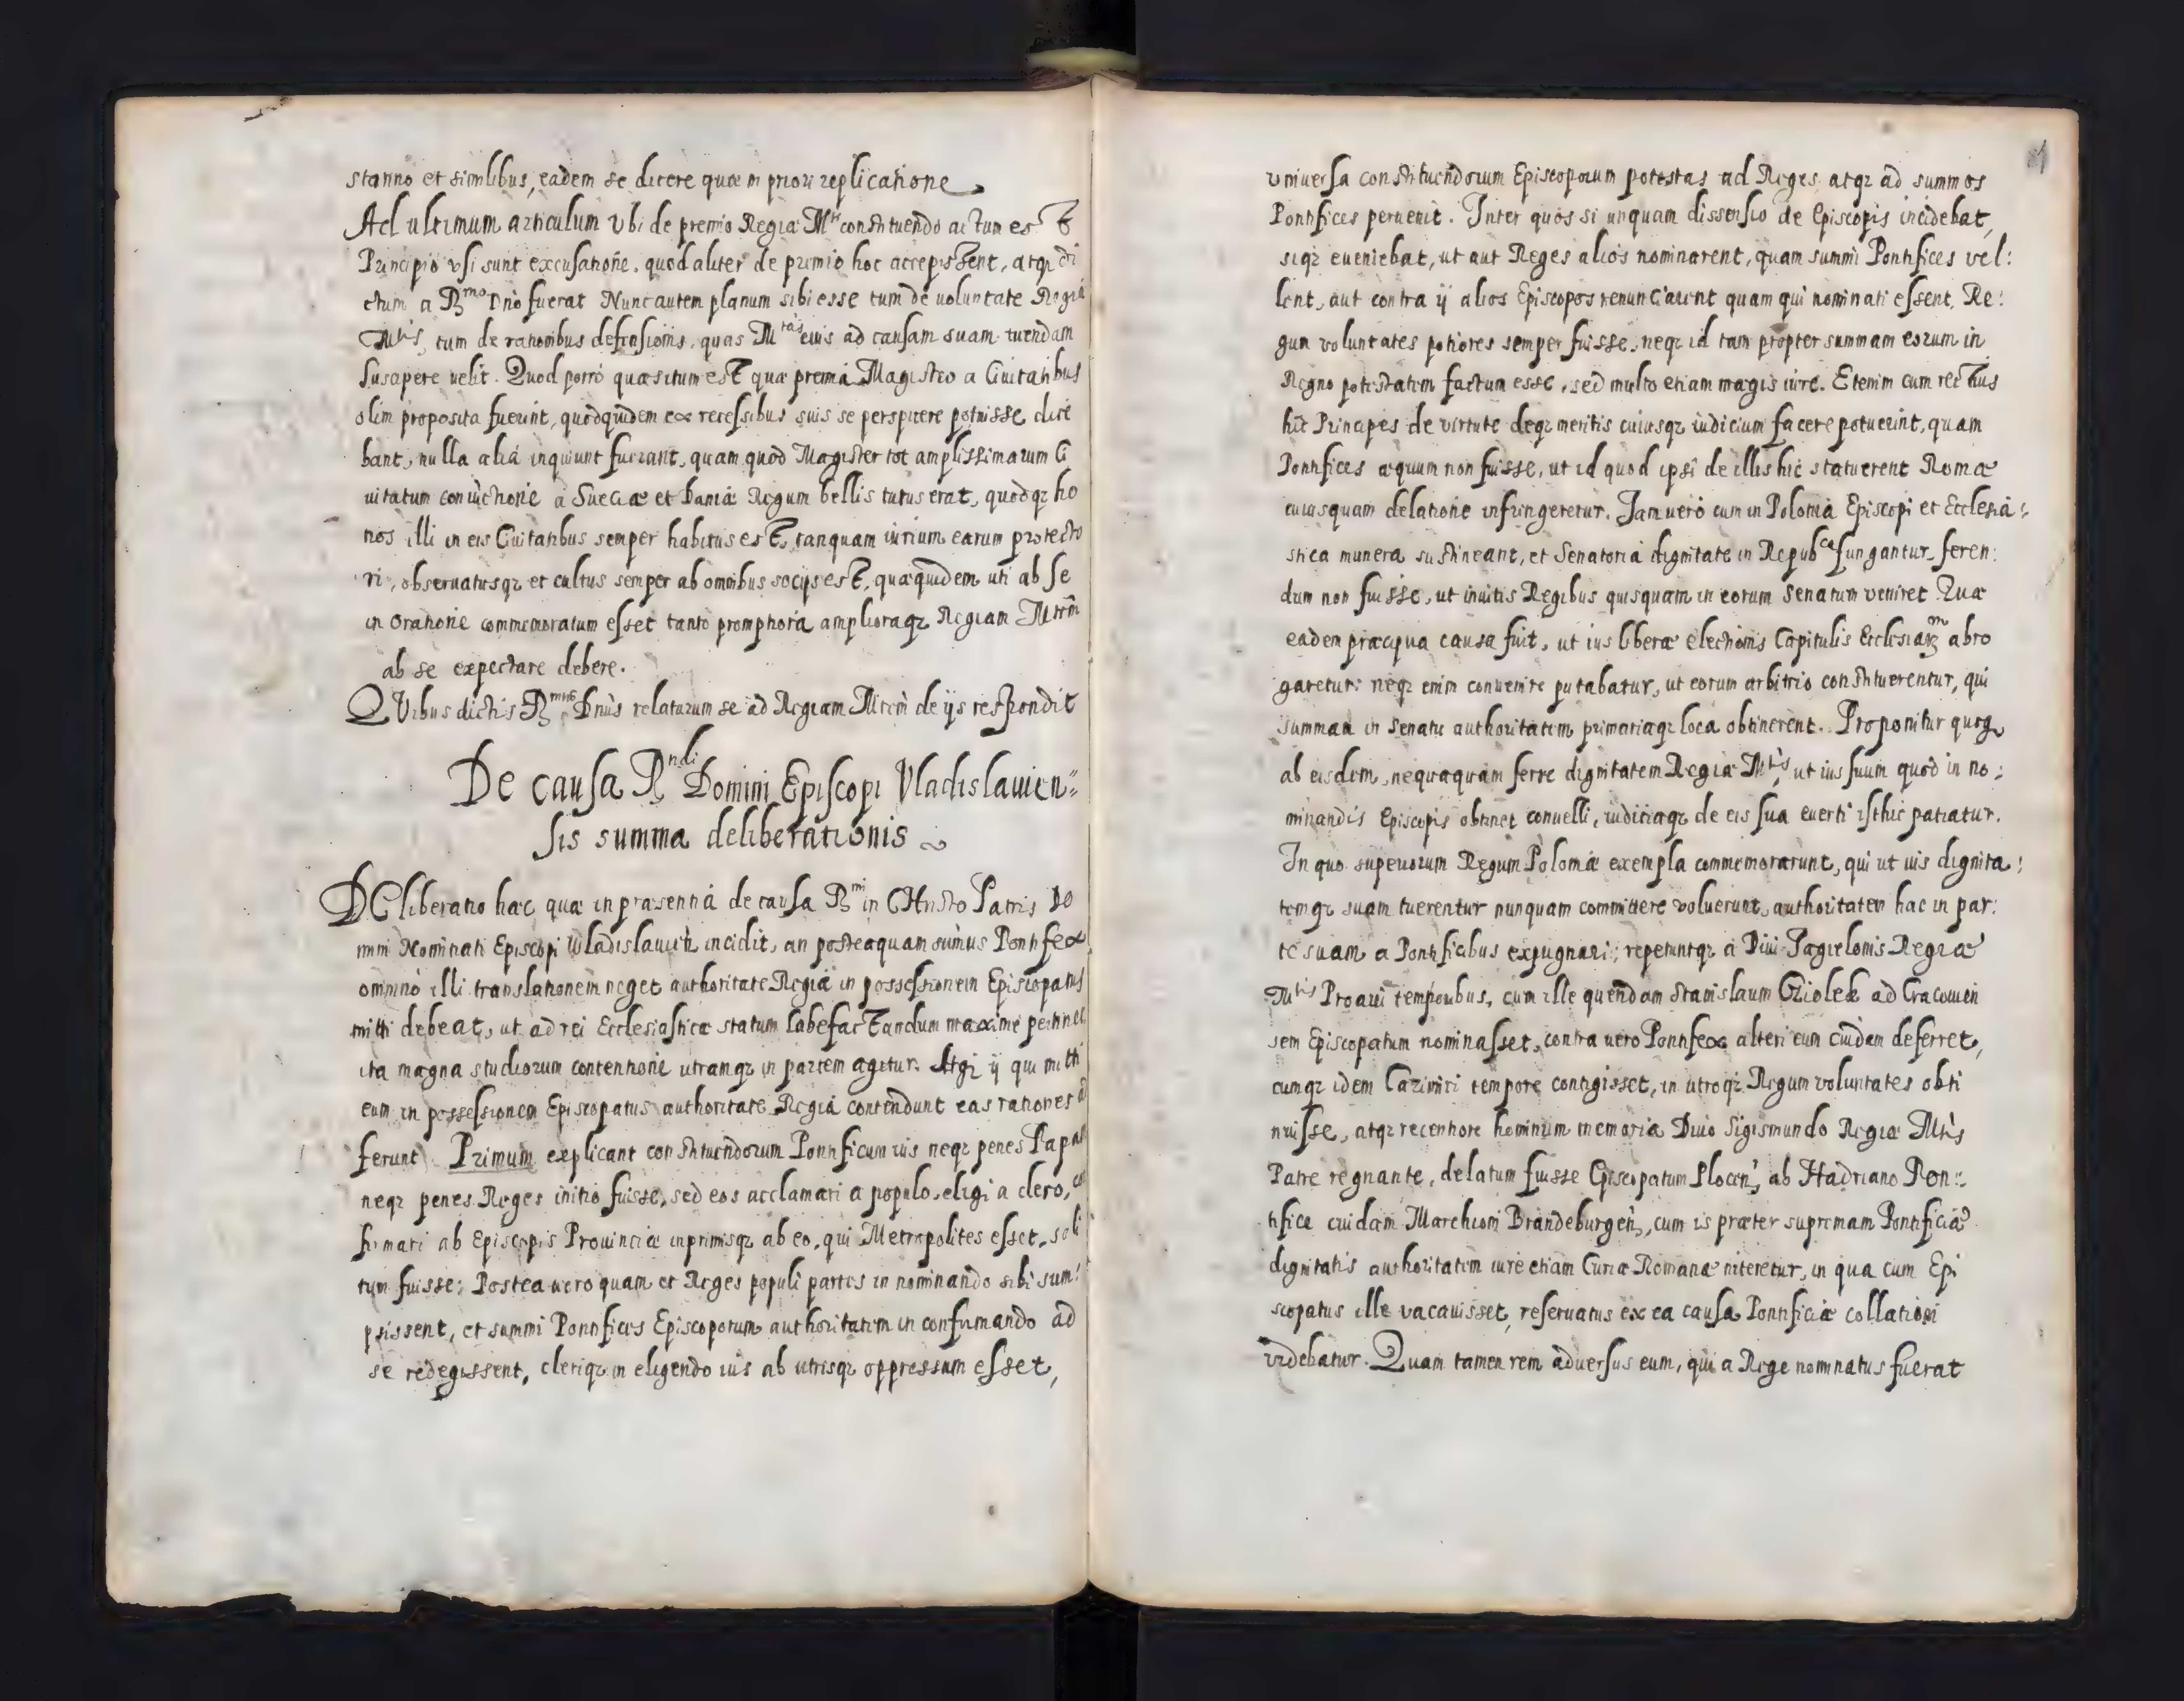 stanno et similibus, eadem se dicere quæ in priori replicatione
Ad ultimum articulum Vbi de premio Regiæ Mti constituendo actum est
Principio vsi sunt excusatione, quod aliter de premio hoc accepissent, atqz di
ctum a Rmo Dno fuerat Nunc autem planum sibi esse tum de uoluntate Regiæ
Mtis, tum de rationibus defensionis, quas Mtas eius ad causam suam tuendam
suscipere uelit. Quod porro quæsitum est quæ premia Magistro a Ciuitatibus
olim proposita fuerint, quod quidem ex recessibus suis se perspicere potuisse dice
bant, nulla alia inquiunt fuerant, quam quod Magister tot amplissimarum Ci
uitatum coniunctione a Sueciæ et Daniæ Regum bellis tutus erat, quodqz ho
nos illi in eis Ciuitatibus semper habitus est, tanquam iurium earum protecto
ri, obseruatusqz et cultus semper ab omnibus socijs est, quæ quidem uti ab se
in oratione commemoratum esset tanto promptiora amplioraqz Regiam Mtem
ab se expectare debere.
QVibus dictis Rmus Dnus relaturum se ad Regiam Mtem de ijs respondit
De causa Rndi Domini Episcopi Vladislauien=
sis summa deliberationis
DEliberatio hæc quæ in præsentia de causa Rmi in CHristo Patris Do
mini Nominati Episcopi Wladislauien incidit, an posteaquam sumus Pontifex
omnino illi translationem neget authoritate Regia in possessionem Episcopatus
mitti debeat, ut ad rei Ecclesiasticæ statum labefactandum maxime pertinet
ita magna studiorum contentione utramqz in partem agitur. Atqz ij qui mitti
eum in possessionem Episcopatus authoritate Regia contendunt eas rationes
ferunt Primum explicant constituendorum Pontificum ius neqz penes Papam
neqz penes Reges initio fuisse, sed eos acclamari a populo, eligi a clero,
firmari ab Episcopis Prouinciæ inprimisqz ab eo, qui Metropolites esset, soli
tum fuisse; Postea uero quam et Reges populi partes in nominando sibi sum:
psissent, et summi Pontifices Episcoporum authoritatem in confirmando ad
se redegissent, cleriqz in eligendo ius ab utrisqz oppressum esset,
vniuersa constituendorum Episcoporum potestas ad Reges atqz ad summos
Pontifices peruenit. Inter quos si unquam dissensio de Episcopis incidebat,
siqz eueniebat, ut aut Reges alios nominarent, quam summi Pontifices vel:
lent, aut contra ij alios Episcopos renunciarent quam qui nominati essent, Re:
gun voluntates potiores semper fuisse, neqz id tam propter summam eorum in
Regno potestatem factum esse, sed multo etiam magis iure. Etenim cum rectius
hic Principes de virtute deqz meritis cuiusqz iudicium facere potuerint, quam
Pontifices æquum non fuisse, ut id quod ipsi de illis hic statuerent Romæ
cuiusquam delatione infringeretur. Jam uero cum in Polonia Episcopi et Ecclesia:
stica munera sustineant, et Senatoria dignitate in Repubca fungantur, feren:
dum non fuisse, ut inuitis Regibus quisquam in eorum Senatum veniret Quæ
eadem præcipua causa fuit, ut ius liberæ electionis Capitulis Ecclesiarum abro
garetur: neqz enim conuenire putabatur, ut eorum arbitrio constituerentur, qui
summam in senatu authoritatem primariaqz loca obtinerent. Proponitur quoqz
ab eisdem, nequaquam ferre dignitatem Regiæ Mtis, ut ius suum quod in no:
minandis Episcopis obtinet conuelli, iudiciaqz de eis sua euerti isthic patiatur.
In quo superiorum Regum Poloniæ exempla commemorarunt, qui ut ius dignita:
temqz suam tuerentur nunquam committere voluerunt, authoritatem hac in par:
te suam a Pontificibus expugnari; repetuntqz a Diui Jagielonis Regiæ
Mtis Proaui temporibus, cum ille quendam Stanislaum Cziolek ad Cracouien
sem Episcopatum nominasset, contra uero Pontifex alteri eum cuidam deferret,
cumqz idem Cazimiri tempore contigisset, in utroqz Regum voluntates obti
nuisse, atqz recentiore hominum memoria Diuo Sigismundo Regiæ Mtis
Patre regnante, delatum fuisse Episcopatum Plocen, ab Hadriano Pon:
tifice cuidam Marchioni Brandeburgen, cum is præter supremam Pontificiæ
dignitatis authoritatem iure etiam Curiæ Romanæ niteretur, in qua cum Epi
scopatus ille vacauisset, reseruatus ex ea causa Pontificiæ collationi
videbatur. Quam tamen rem aduersus eum, qui a Rege nominatus fuerat